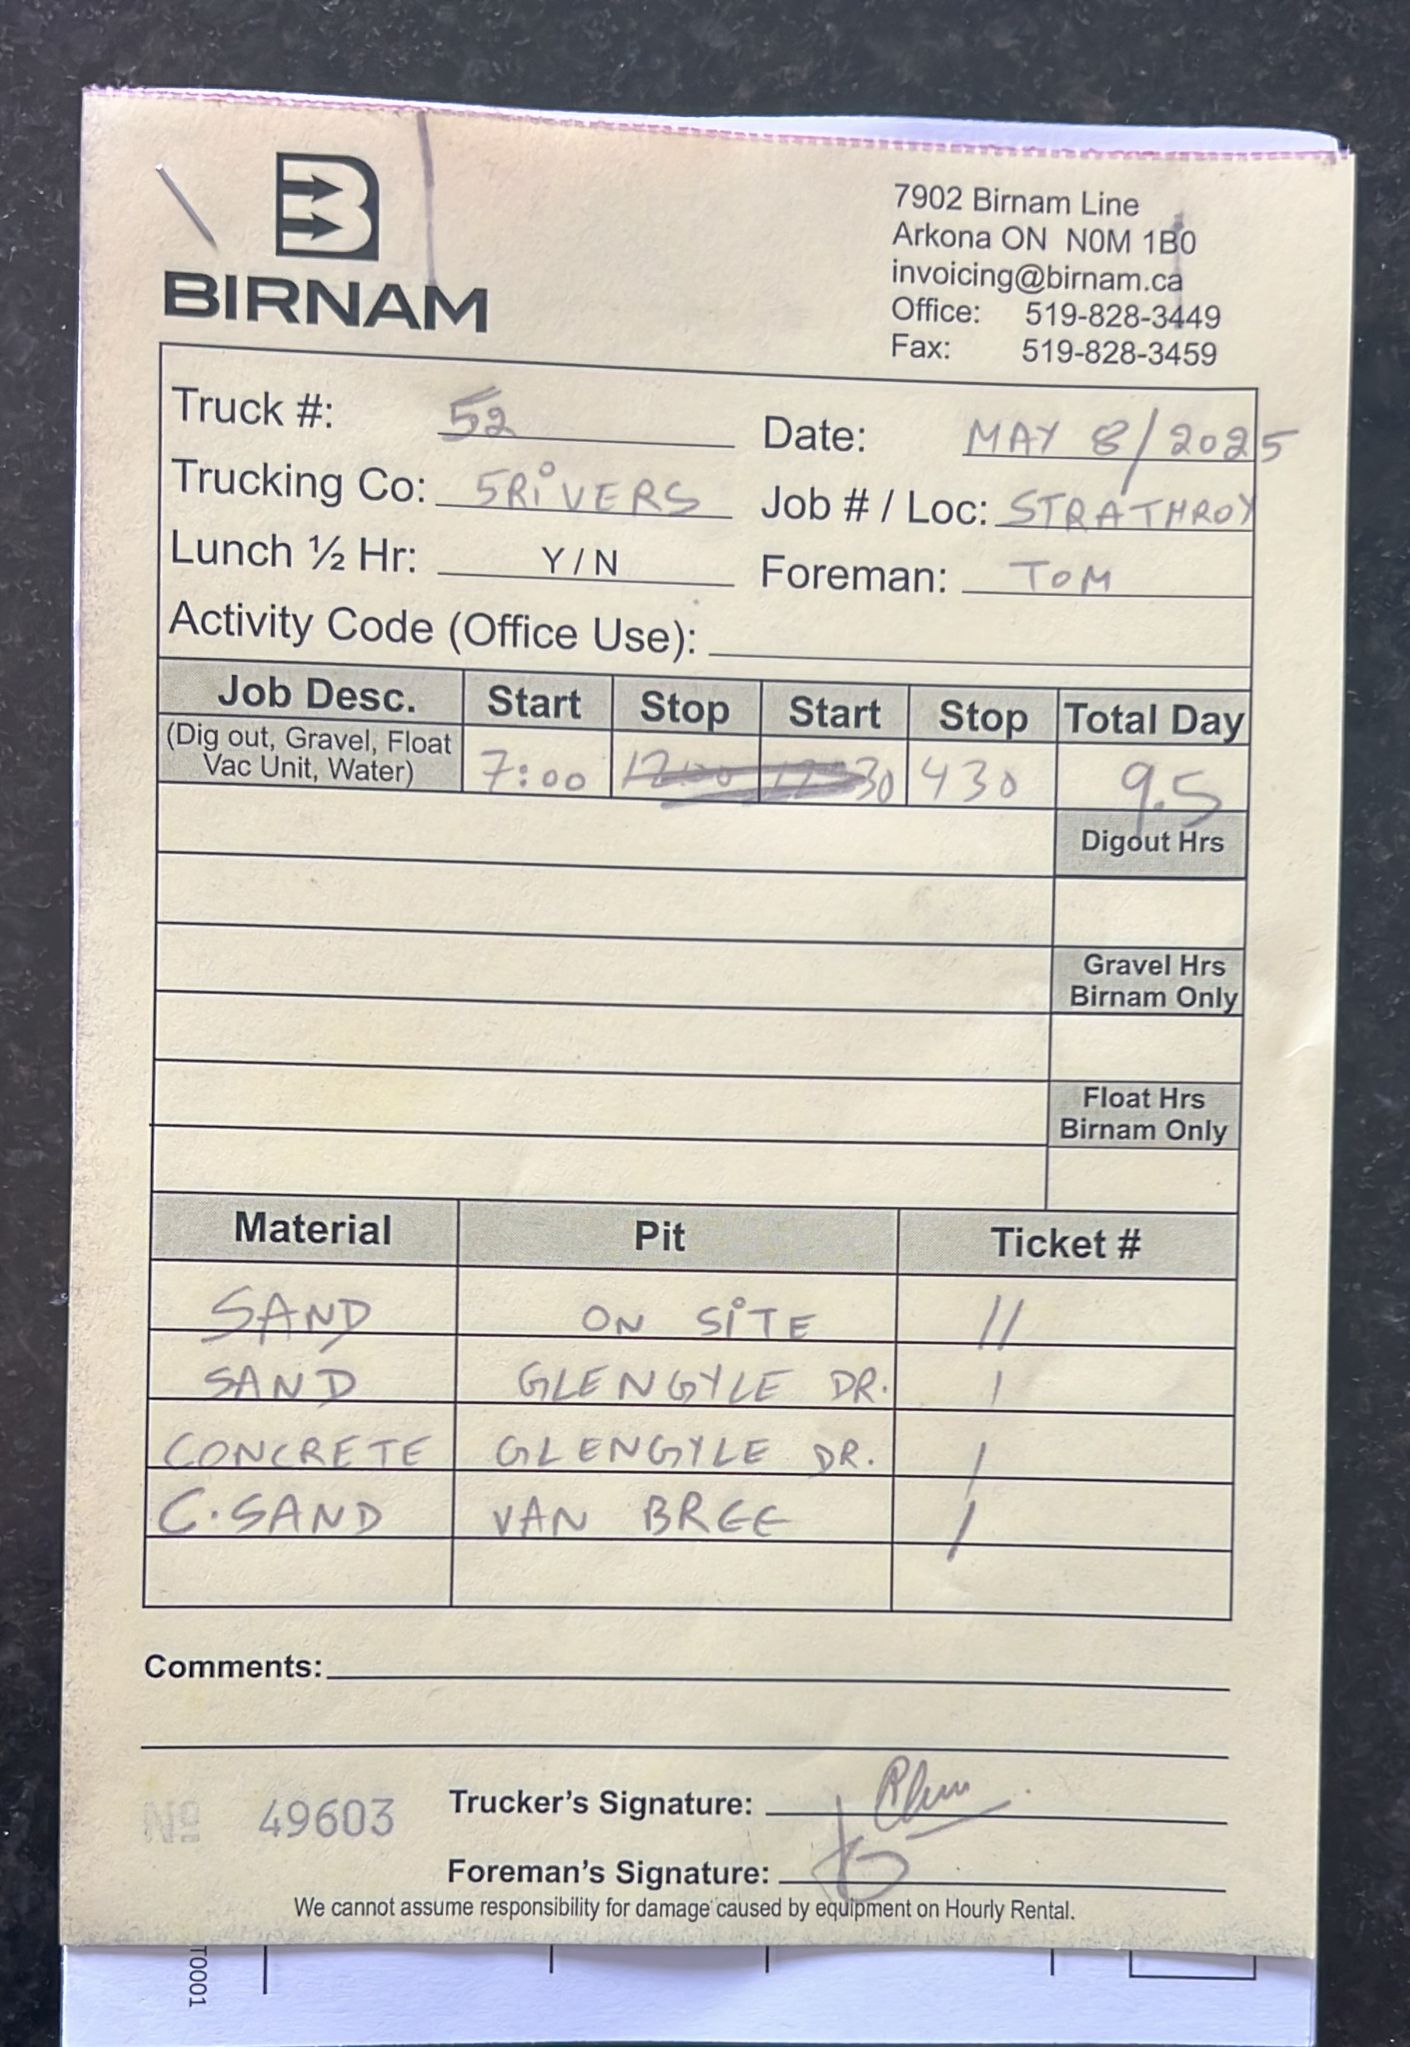 BIRNAM
7902 Birnam Line
Arkona ON N0M 1B0
invoicing@birnam.ca
Office: 519-828-3449
Fax: 519-828-3459
Truck #: 52 Date: MAY 8/2025
Trucking Co: 5RiVERS Job # / Loc: STRATHROY
Lunch ½ Hr: Y / N Foreman: TOM
Activity Code (Office Use):
Job Desc. Start Stop Start Stop Total Day
(Dig out, Gravel, Float
Vac Unit, Water) 7:00 12:00 12:30 430 9.5
Digout Hrs
Gravel Hrs
Birnam Only
Float Hrs
Birnam Only
Material Pit Ticket #
SAND ON SiTE 11
SAND GLENGYLE DR. 1
CONCRETE GLENGYLE DR. 1
C.SAND VAN BREE 1
Comments:
Nº 49603 Trucker's Signature:
Foreman's Signature:
We cannot assume responsibility for damage caused by equipment on Hourly Rental.
T0001